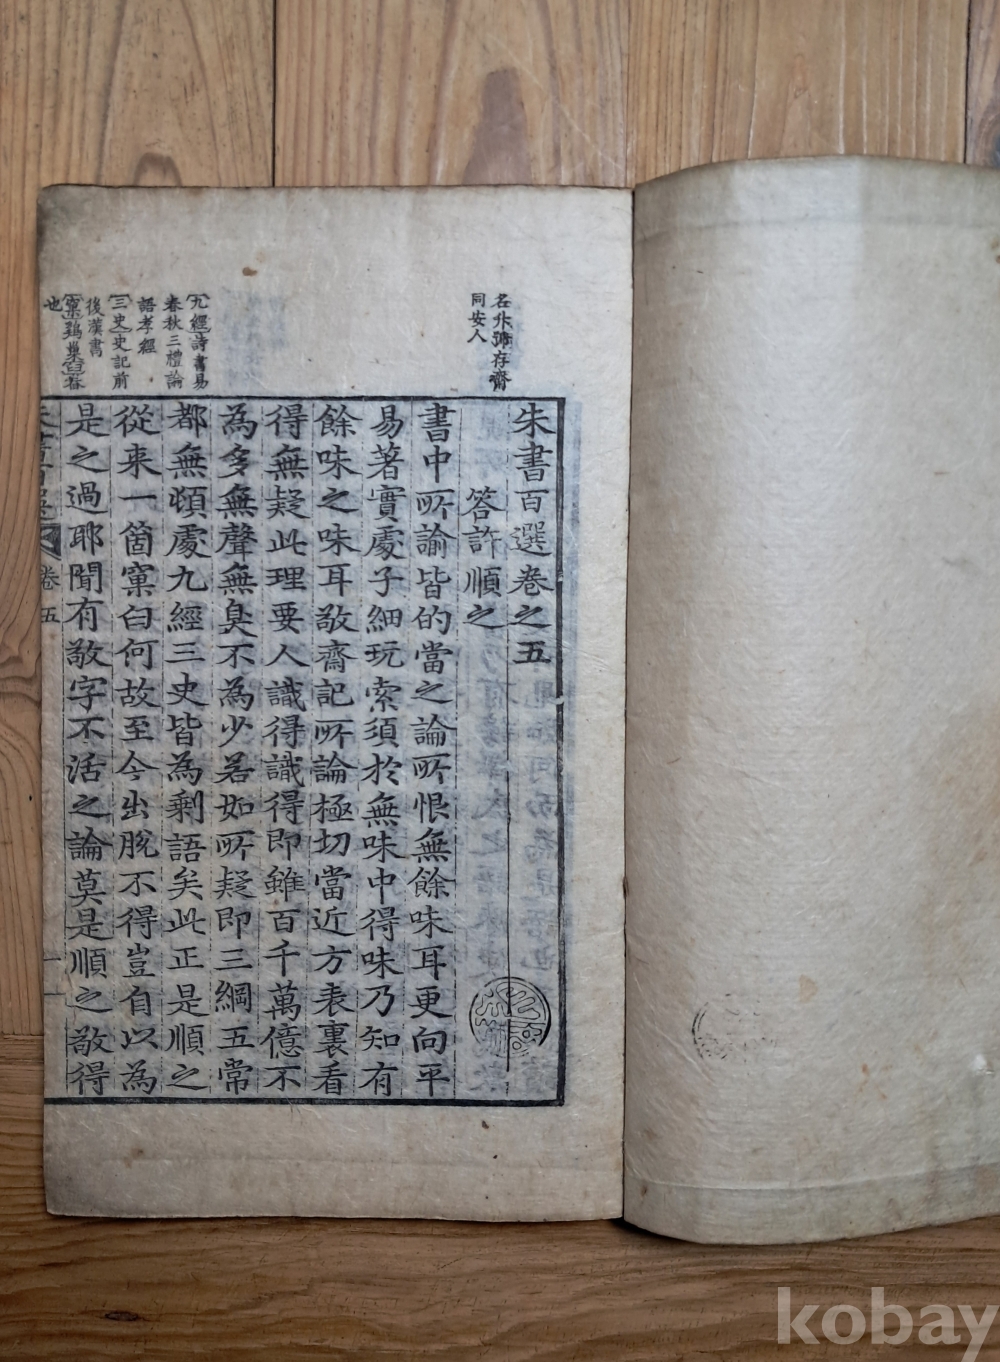 名升號存齋
同安人
九經詩書易
春秋三禮論
語孝經
三史史記前
後漢書
窠鷄巢臼舂
也
朱書百選卷之五
答許順之
書中所諭皆的當之論所恨無餘味耳更向平
易著實處子細玩索須於無味中得味乃知有
餘味之味耳敬齋記所論極切當近方表裏看
得無疑此理要人識得識得即雖百千萬億不
為多無聲無臭不為少若如所疑即三綱五常
都無頓處九經三史皆為剩語矣此正是順之
從來一箇窠臼何故至今出脫不得豈自以為
是之過耶聞有敬字不活之論莫是順之敬得
卷五
一
kobay